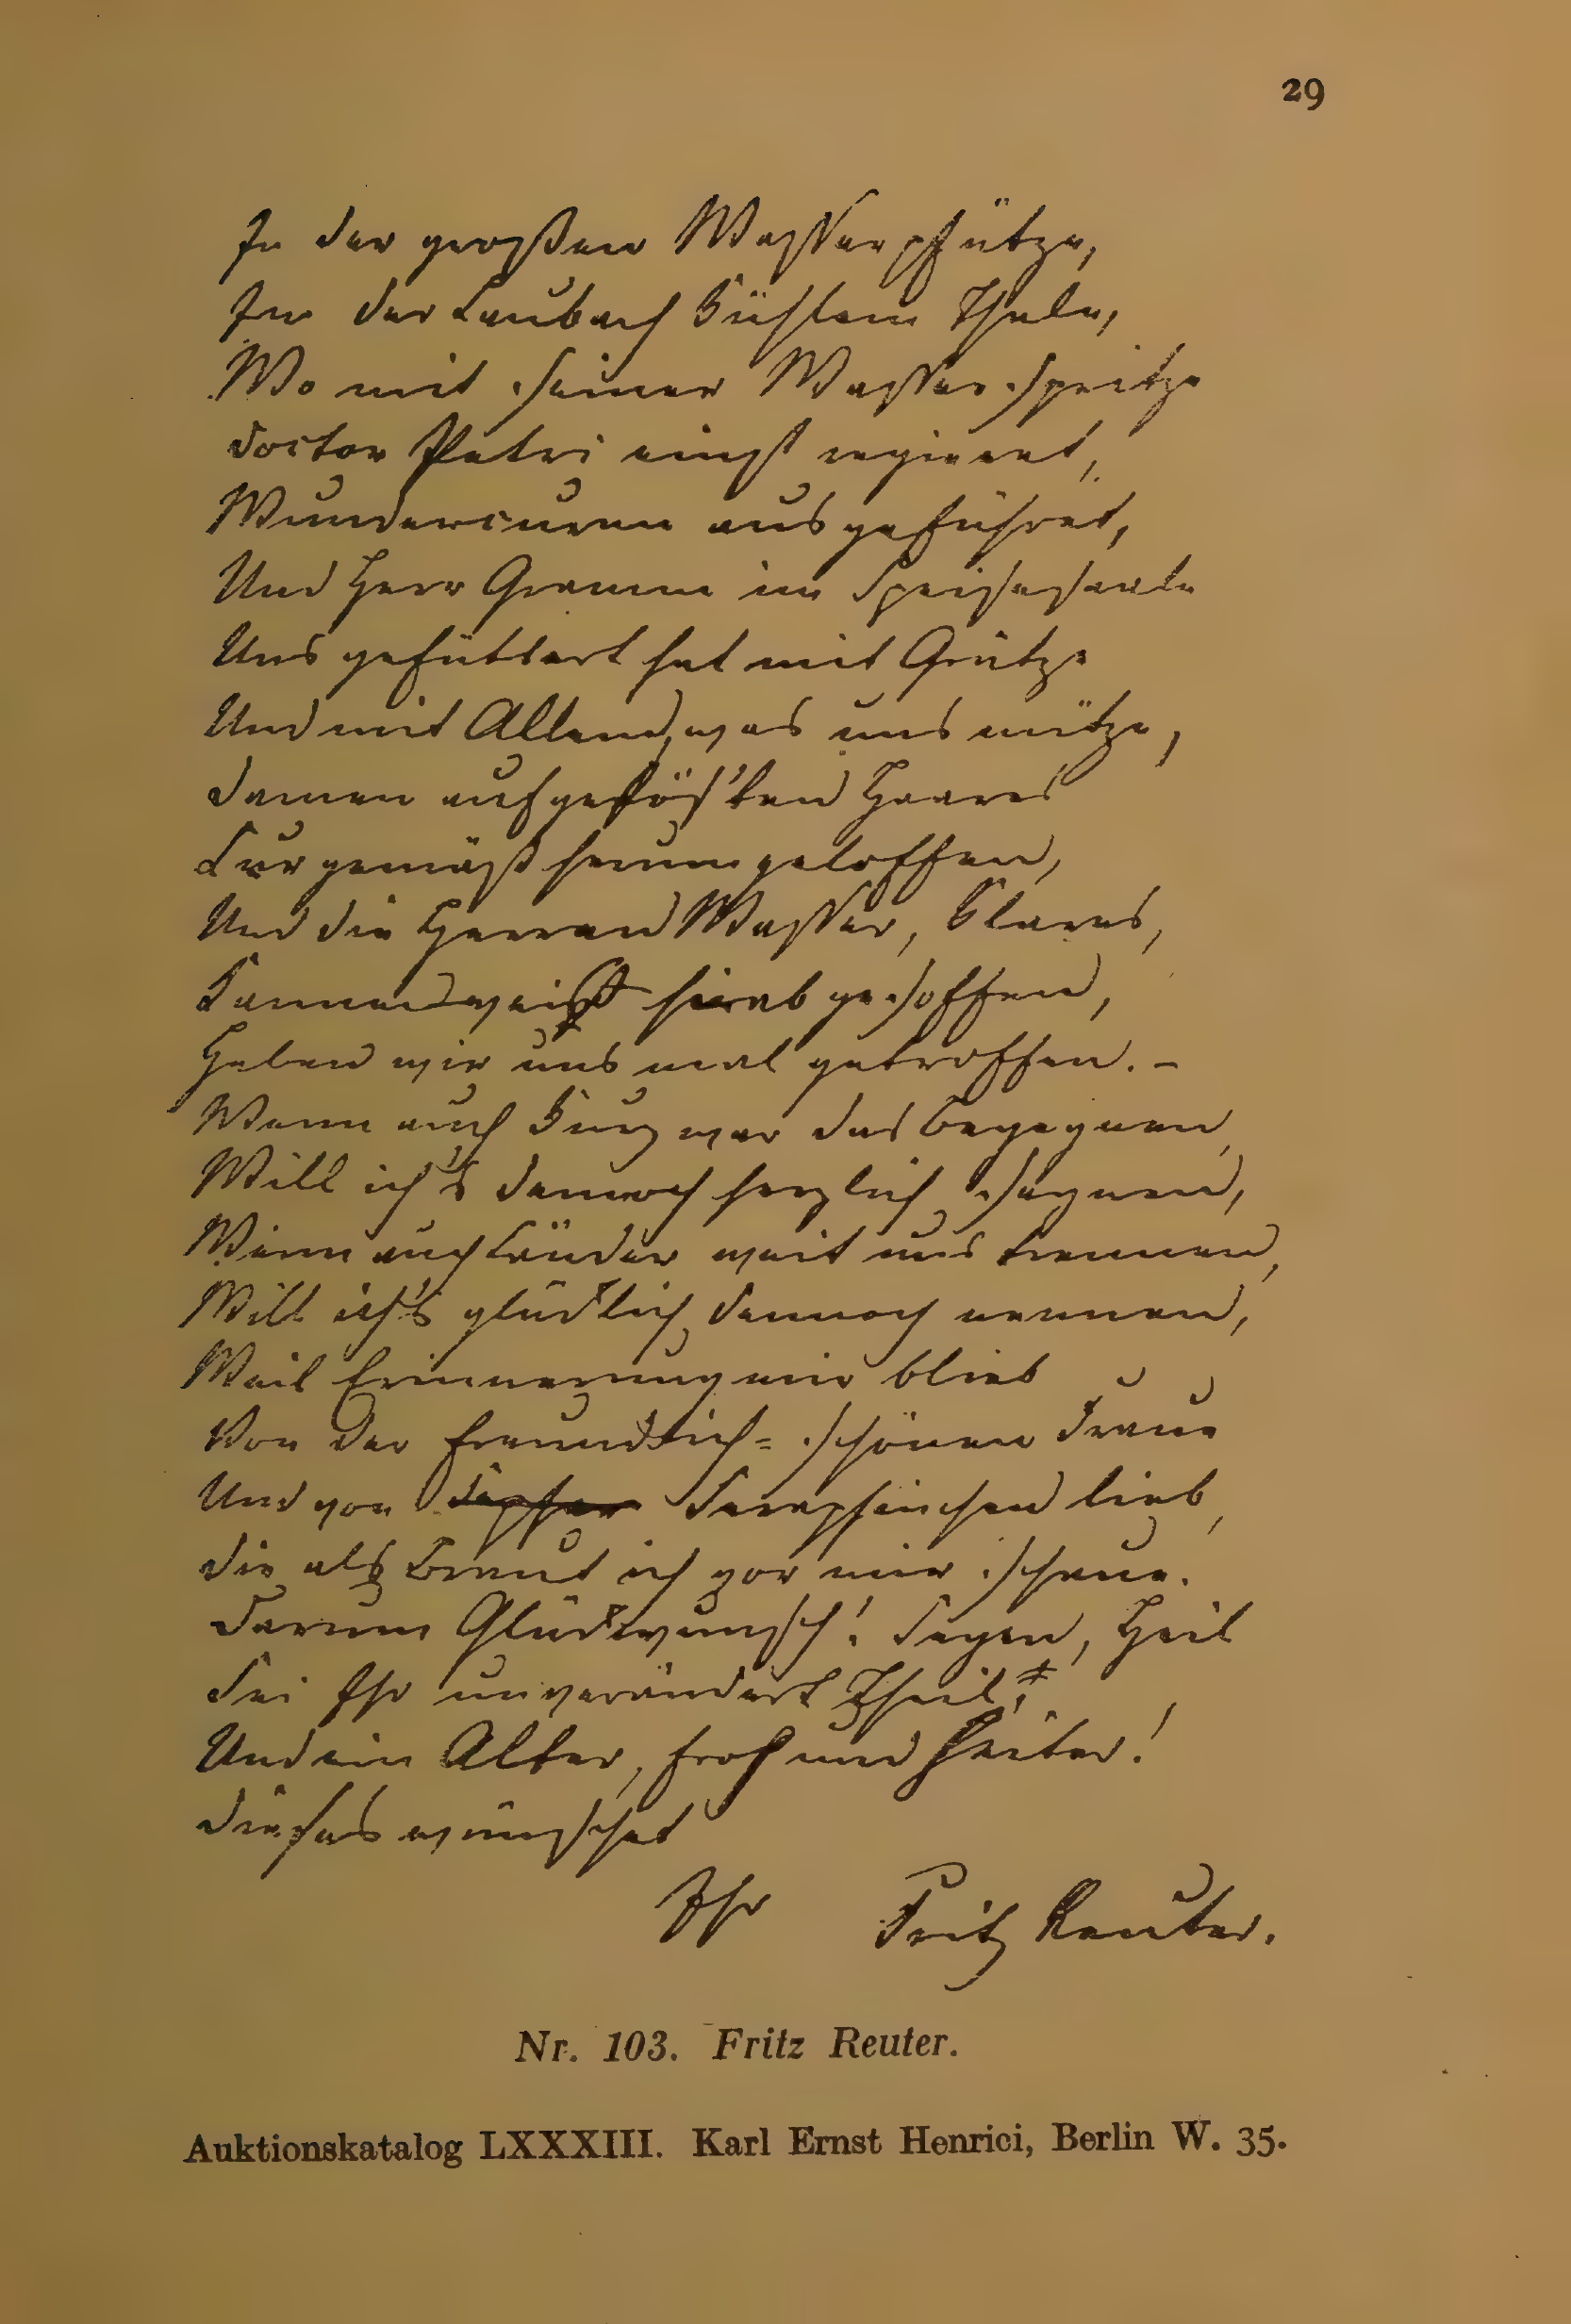 29
In der großen Wasserpfütze,
In der Laubach kühlem Thale,
Wo mit seiner Wasserspritze
Doctor Petri einst regieret,
Wundercuren ausgeführet,
Und Herr Gramm im Speisesaale
Uns gefüttert hat mit Grütze
Und mit Allem, was uns nütze,
Damen aufgelös'ten Haares
Curgemäß herumgeloffen,
Und die Herren Wasser, klares,
Kannenweis hinab gesoffen,
Haben wir uns mal getroffen. –
Wenn auch kurz war das Begegnen,
Will ich's dennoch herzlich segnen,
Wenn auch Länder weit uns trennen,
Will ich's glücklich dennoch nennen,
Weil Erinnerung mir blieb
Von der freundlich- schönen Fraue
Und von Seraphinchen lieb,
Die als Braut ich vor mir schaue.
Darum Glückwunsch! Segen, Heil
Sei Ihr unverändert Theil,
Und ein Alter, froh und heiter!
Dieses wünschet
Ihr Fritz Reuter.
Nr. 103. Fritz Reuter.
Auktionskatalog LXXXIII. Karl Ernst Henrici, Berlin W. 35.